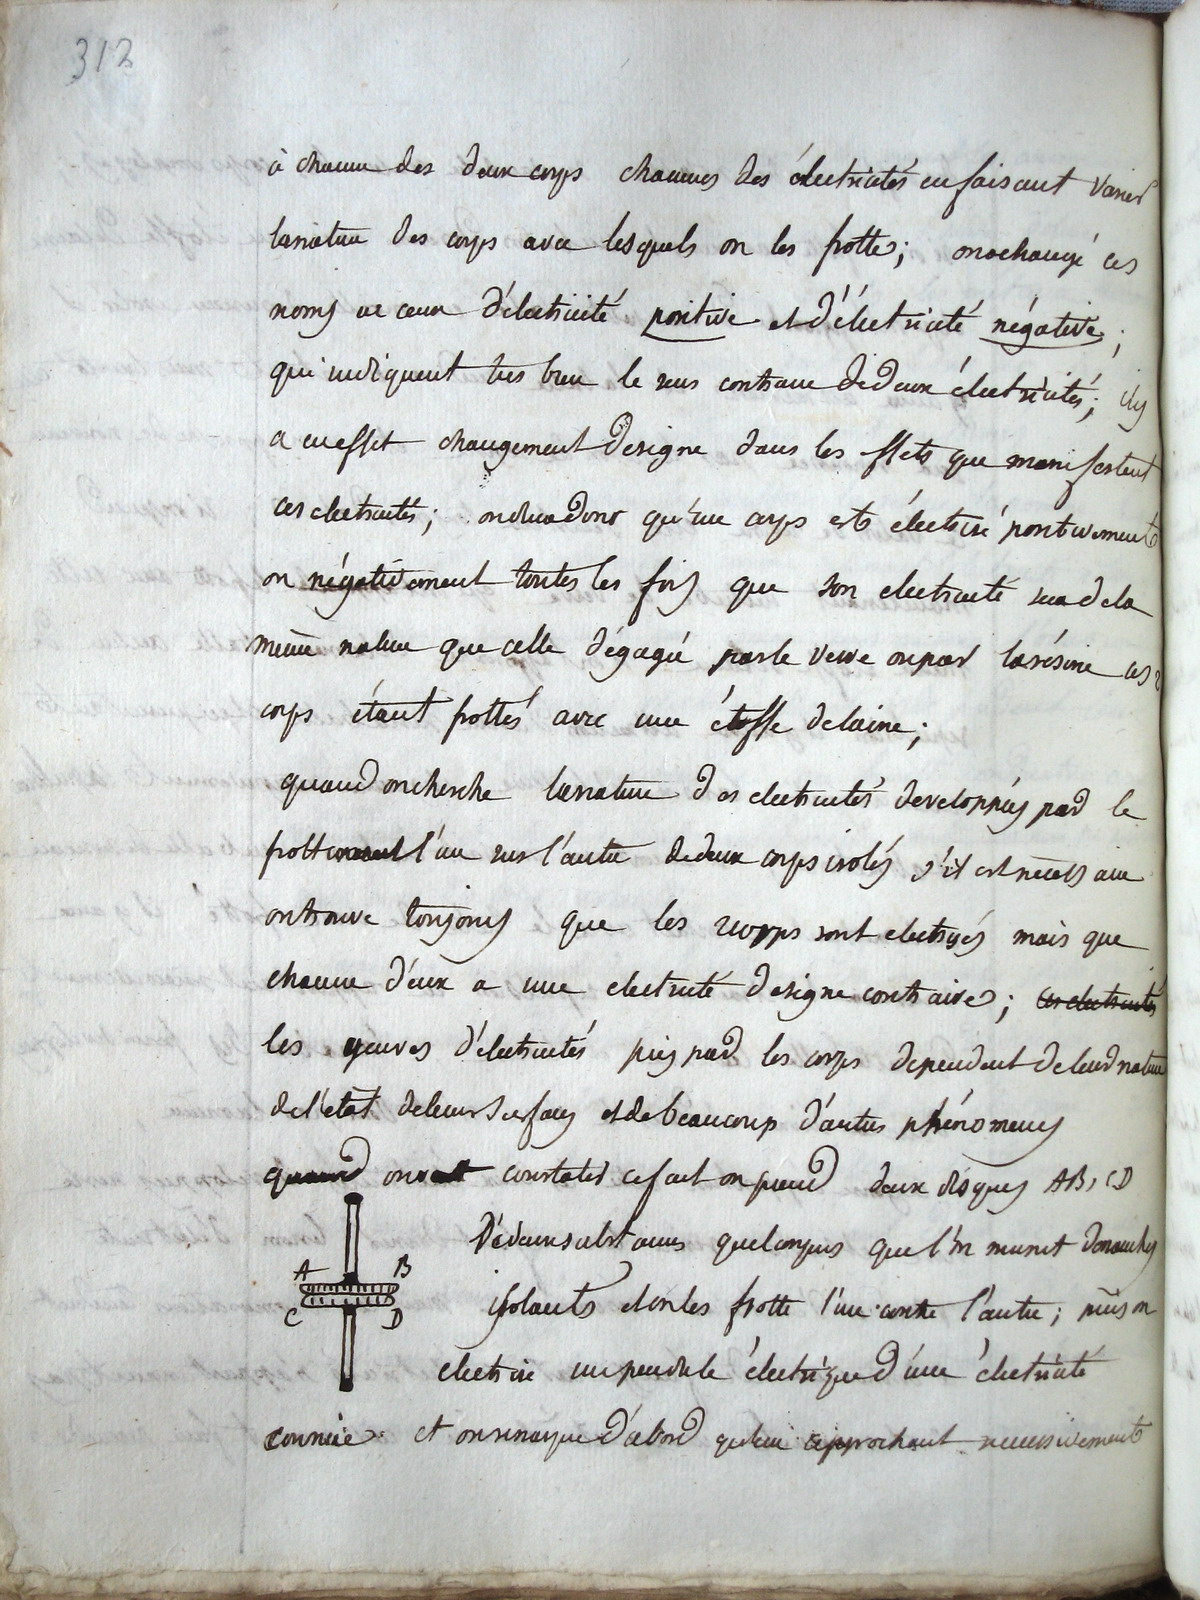 312
à chacun des deux corps chacunes des électricités en faisant varier
la nature des corps avec lesquels on les frotte; on a changé ces
noms en ceux d'électricité positive et d'électricité négative;
qui indiquent tres bien le sens contraire de deux électricités; il y
a en effet changement de signe dans les effets que manifestent
ces electricités; on dira donc qu'un corps est électrisé positivement
ou négativement toutes les fois que son electricité sera de la
même nature que celle dégagée par le verre ou par la résine ces 2
corps étant frottés avec une étoffe de laine;
quand on cherche la nature des electricités developpées par le
frottement l'un sur l'autre de deux corps isolés s'il est nécessaire
on trouve toujours que les 2 corps sont electrisés mais que
chacun d'eux a une electricité de signe contraire; ces electricités
les genres d'électricités pris par les corps dependent de leur nature
de l'état de leurs surfaces et de beaucoup d'autres phénomenes
quand on veut constater ce fait on prend deux disques AB, CD
de deux substances quelconques que l'on munit de manches
isolants et on les frotte l'un contre l'autre; puis on
electrise un pendule électrique d'une électricité
connue et on remarque d'abord qu'en approchant successivement
A B
C D